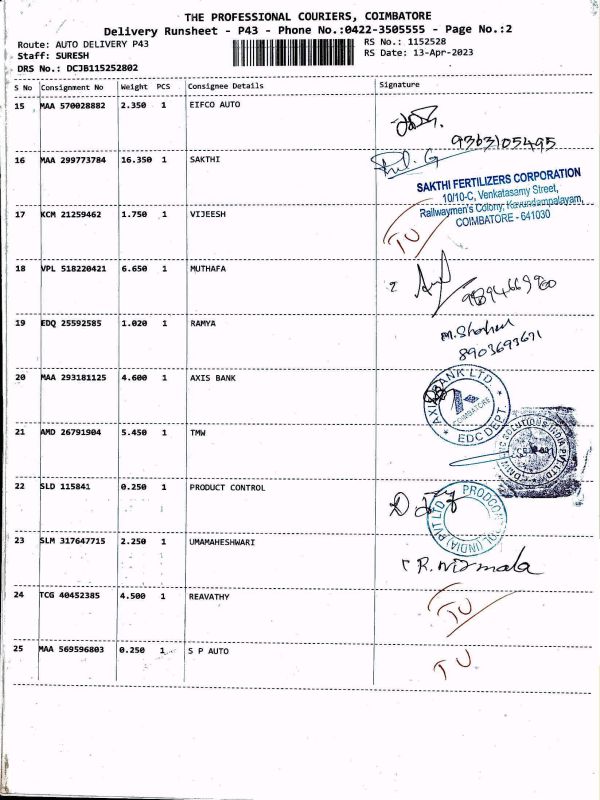 THE PROFESSIONAL COURIERS, COIMBATORE
Delivery Runsheet - P43 - Phone No.:0422-3505555 - Page No.:2
Route: AUTO DELIVERY P43
RS No.: 1152528
Staff: SURESH
RS Date: 13-Apr-2023
DRS No.: DCJB115252802
S No Consignment No Weight PCS Consignee Details Signature
15 MAA 570028882 2.350 1 EIFCO AUTO
9363105495
16 MAA 299773784 16.350 1 SAKTHI
SAKTHI FERTILIZERS CORPORATION
10/10-C, Venkatasamy Street,
Railwaymen's Colony, Kavundampalayam,
COIMBATORE - 641030
17 KCM 21259462 1.750 1 VIJEESH
TU
18 VPL 518220421 6.650 1 MUTHAFA
19 EDQ 25592585 1.020 1 RAMYA
8903693671
20 MAA 293181125 4.600 1 AXIS BANK
AXIS BANK LTD
COIMBATORE
EDC DEPT.
21 AMD 26791904 5.450 1 TMW
SOLUTIONS INDIA PVT LTD
22 SLD 115841 0.250 1 PRODUCT CONTROL
(INDIA) PVT LTD
23 SLM 317647715 2.250 1 UMAMAHESHWARI
R. Nirmala
24 TCG 40452385 4.500 1 REAVATHY
TU
25 MAA 569596803 0.250 1 S P AUTO
TU